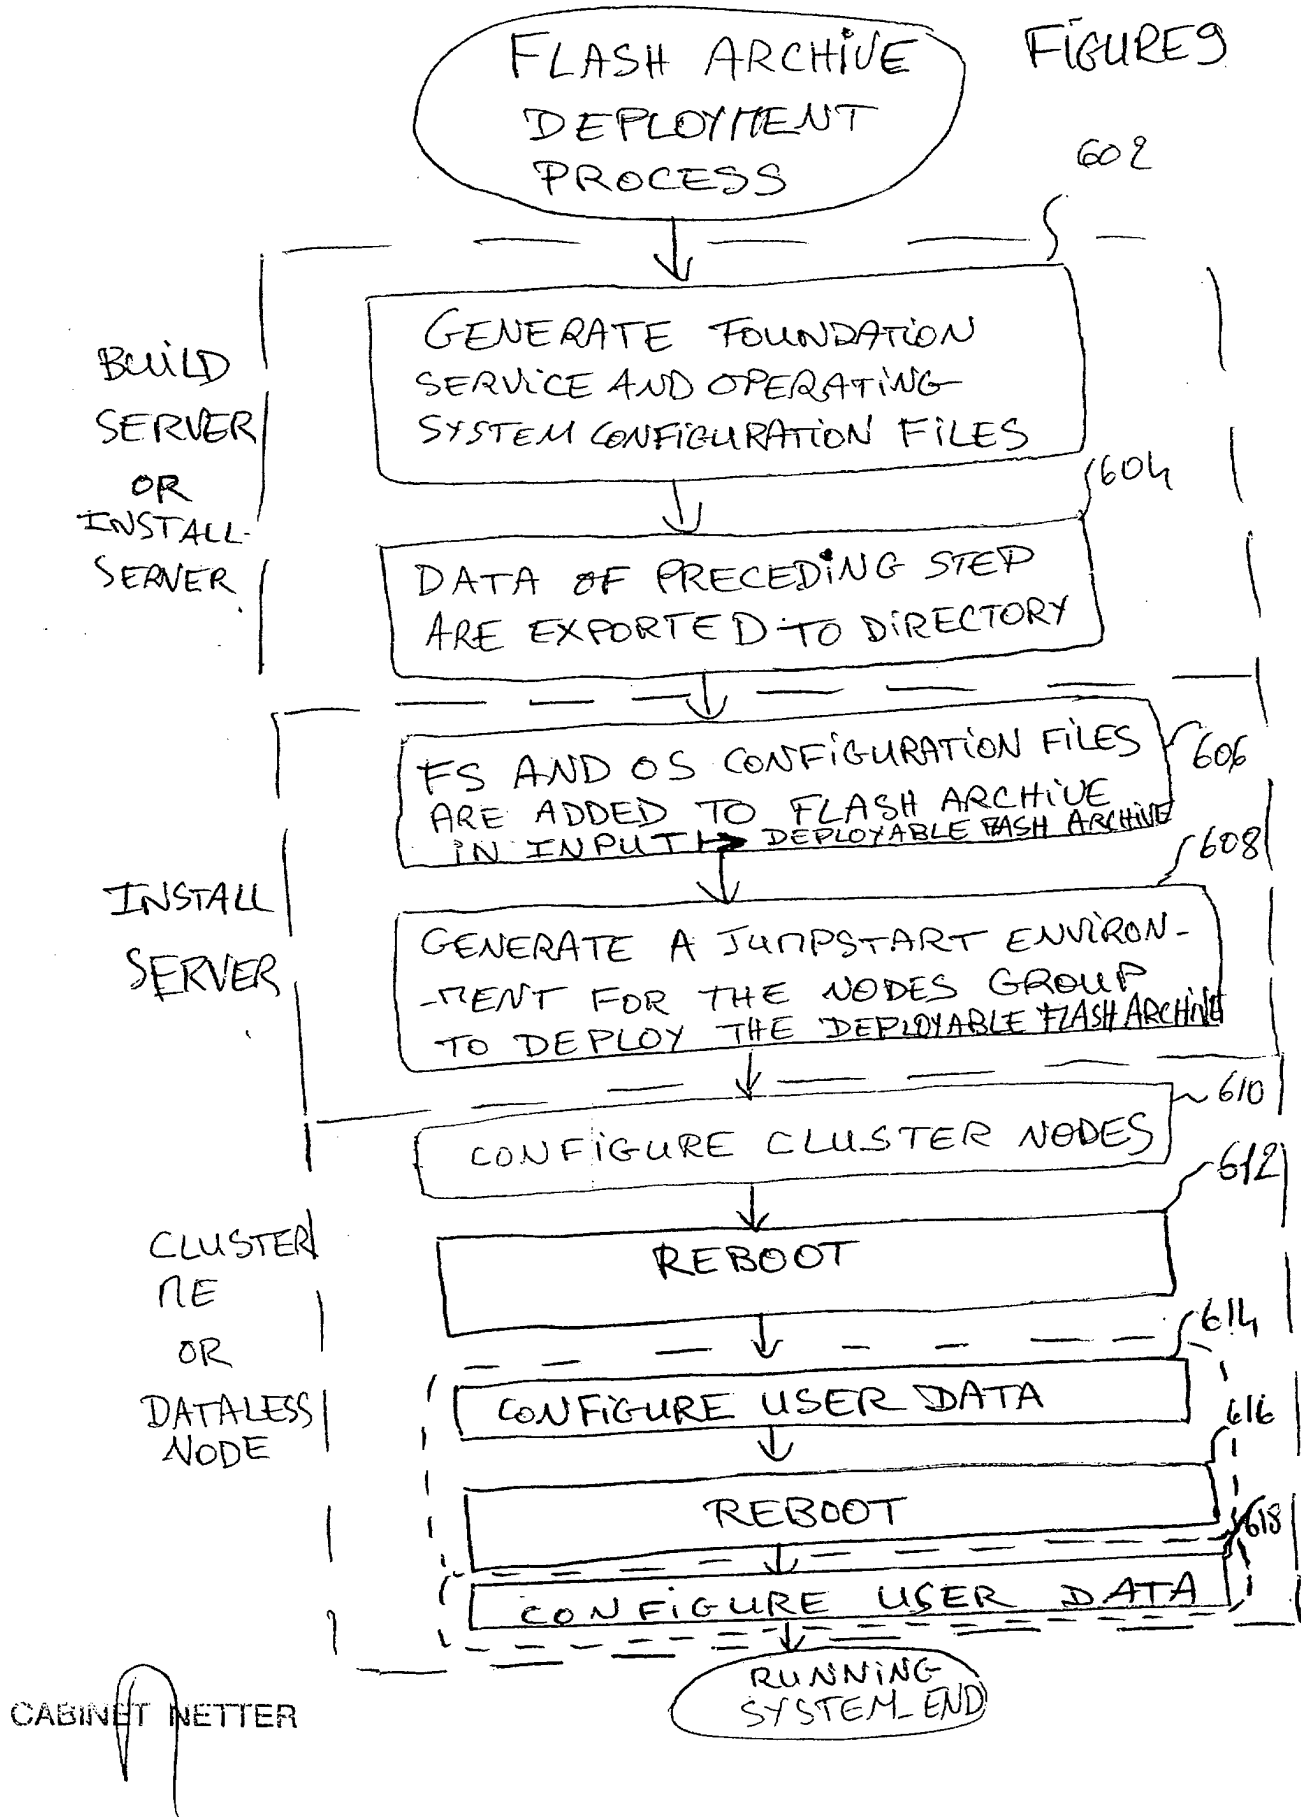 FLASH ARCHIVE
DEPLOYMENT
PROCESS
FIGURE 9
602
BUILD
SERVER
OR
INSTALL-
SERVER
GENERATE FOUNDATION
SERVICE AND OPERATING
SYSTEM CONFIGURATION FILES
604
DATA OF PRECEDING STEP
ARE EXPORTED TO DIRECTORY
INSTALL
SERVER
FS AND OS CONFIGURATION FILES
ARE ADDED TO FLASH ARCHIVE
IN INPUT → DEPLOYABLE FLASH ARCHIVE
606
608
GENERATE A JUMPSTART ENVIRON-
-MENT FOR THE NODES GROUP
TO DEPLOY THE DEPLOYABLE FLASH ARCHIVE
610
CONFIGURE CLUSTER NODES
612
CLUSTER
ME
OR
DATALESS
NODE
REBOOT
614
CONFIGURE USER DATA
616
REBOOT
618
CONFIGURE USER DATA
RUNNING
SYSTEM_END
CABINET NETTER